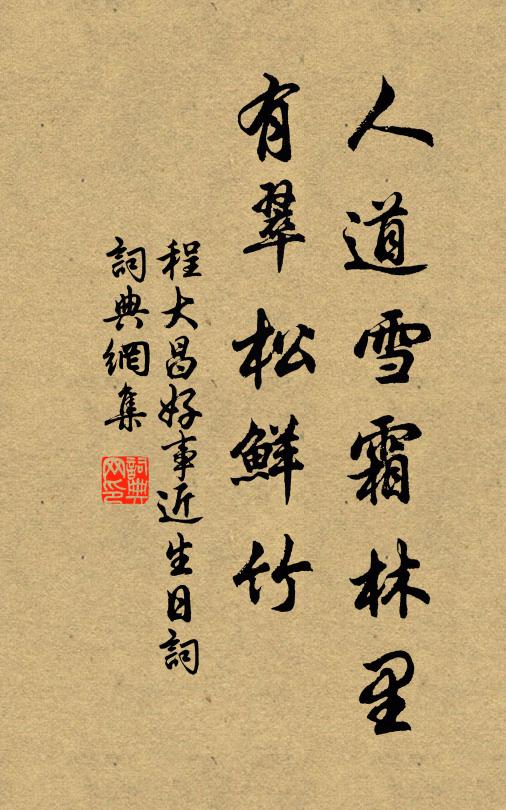 人道雪霜林里
有翠松鲜竹
程大昌好事近生日詞
詞典網集
詞典网印